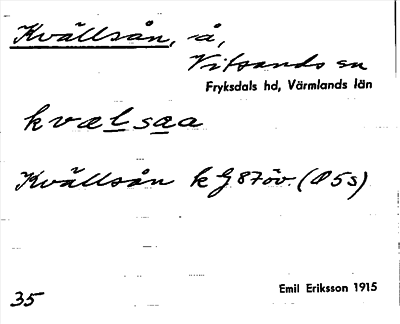 Kvällsån, å,
Vitsands sn
Fryksdals hd, Värmlands län
kvælsaa
Kvällsån k G 87öv. (Ø 5s)
Emil Eriksson 1915
35